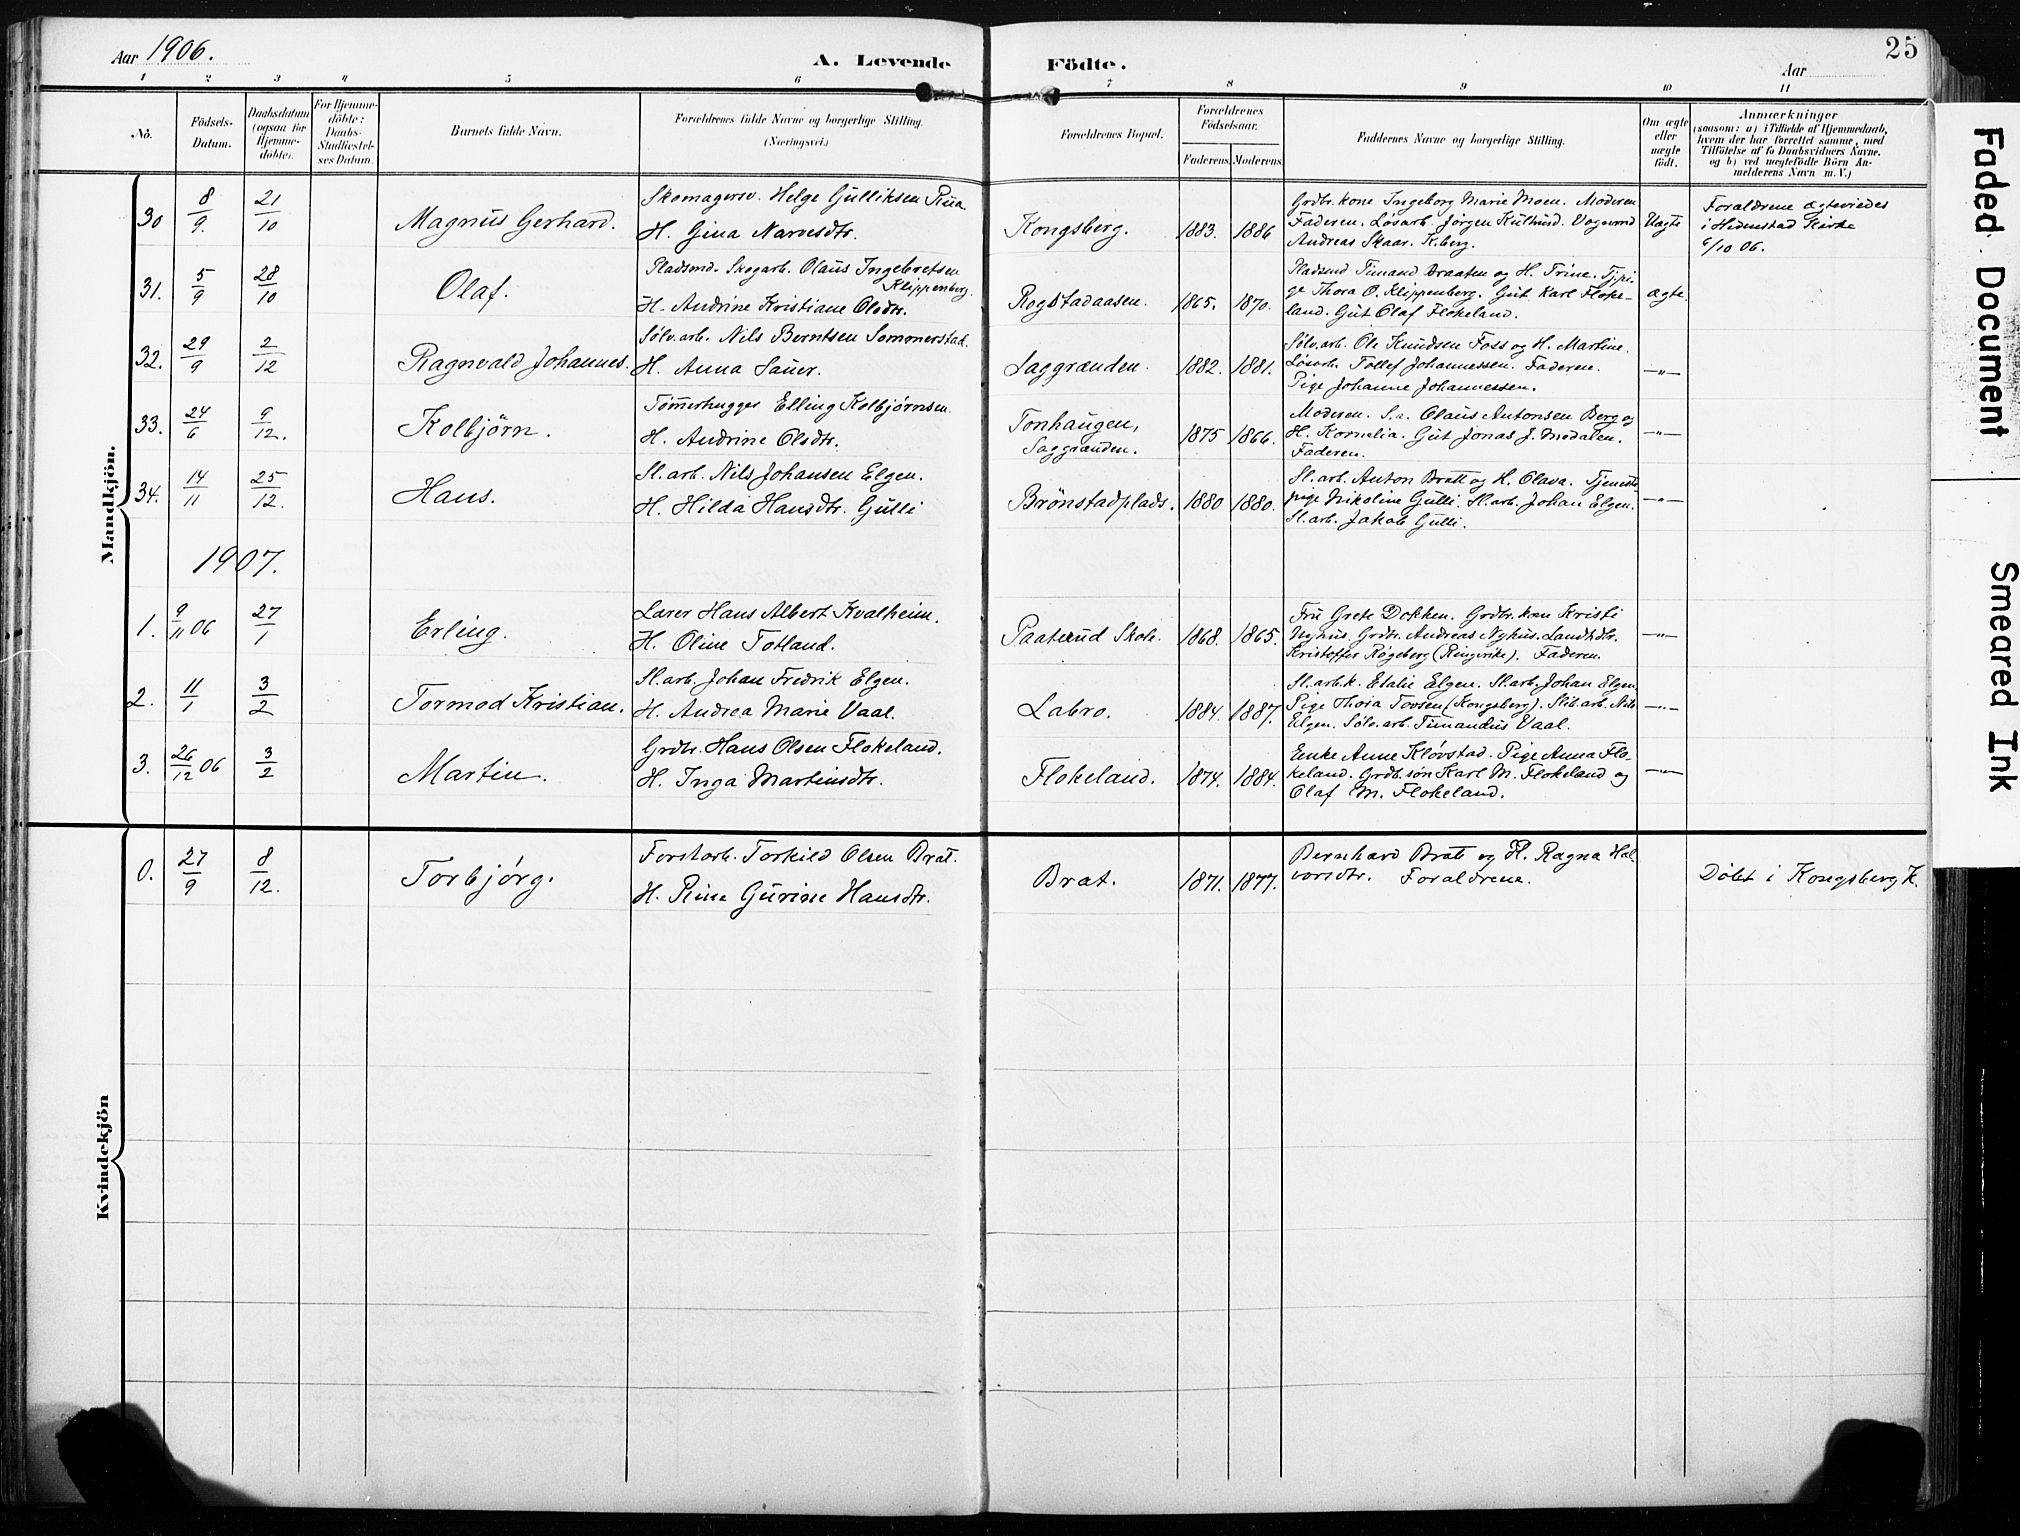 Aar 1906.
A. Levende Födte.
Aar
25
1 2 3 4 5 6 7 8 9 10 11
No. Födsels-Datum. Daabsdatum (ogsaa for Hjemme-döbte). For Hjemme-döbte: Daabs-Stadfæstel-ses Datum. Barnets fulde Navn. Forældrenes fulde Navne og borgerlige Stilling. (Næringsvei.) Forældrenes Bopæl. Forældrenes Födselsaar. Faderens. Moderens. Faddernes Navne og borgerlige Stilling. Om ægte eller uægte födt. Anmærkninger (saasom: a) i Tilfælde af Hjemmedaab, hvem der har forrettet samme, med Tilföielse af to Daabsvidners Navne, og b) ved uægtefödte Börn An-melderens Navn m. V.)
Mandkjön.
30 8/9. 21/10 Magnus Gerhard. Skomagersv. Helge Gulliksen Rua
H. Gina Narvesdtr. Kongsberg. 1883. 1886
Grdbr. kone Ingeborg Marie Moen. Moderen.
Faderen. Løsarb. Jørgen Vognmd
Andreas Skaar. K.berg.
Uægte
Forældrene ægteviedes
i Hedenstad Kirke
6/10 06.
31. 5/9 28/10 Olaf. Pladsmd. Skogarb. Olaus Ingebretsen
Klippenberg.
H. Andrine Kristiane Olsdtr. Rogstadaasen. 1865. 1870.
Pladsmd Timand Braaten og H. Trine. Tjpi-
ge Thora O. Klippenberg. Gut Karl Floke-
land. Gut Olaf Flokeland.
ægte.
32. 29/9 2/12 Ragnvald Johannes. Sølv.arb. Nils Berntsen Sommerstad.
H. Anna Sauer. Saggrænden. 1882. 1881.
Sølv.arb. Ole Knudsen Foss og H. Martine.
Løsarb. Tollef Johannessen. Faderen.
Pige Johanne Johannessen.
—"—
33. 24/6 9/12. Kolbjørn. Tømmerhugger Elling Kolbjørnsen.
H. Andrine Olsdtr. Tonhaugen,
Saggrænden. 1875 1866.
Moderen. S.a. Olaus Antonsen Berg og
H. Kornelia. Gut Jonas J. Modalen.
Faderen.
—"—
34. 14/11 25/12. Hans. Sl.arb. Nils Johansen Elgen.
H. Hilda Hansdtr. Gulli Brønstadplads. 1880 1880.
Sl.arb. Anton Bratt og H. Olava. Tjeneste-
pige Nikoline Gulli. Sl.arb. Johan Elgen.
Sl.arb. Jakob Gulli.
—"—
1907.
1. 9/11 06 27/1 Erling. Lærer Hans Albert Kvalheim.
H. Oline Totland. Paaterud Skole. 1868. 1865.
Fru Grete Dokken. Grdbr. kone Kristi
Nyhus. Grdbr. Andreas Nyhus. Landhdtr.
Kristoffer Røgeberg (Ringerike). Faderen.
—"—
2. 11/1 3/2 Tormod Kristian. Sl.arb. Johan Fredrik Elgen.
H. Andrea Marie Vaal. Labro. 1884. 1887.
Sl.arb.k. Etalie Elgen. Sl.arb. Johan Elgen.
Pige Thora (Kongsberg). Slib.arb. Nils
Elgen. Sølv.arb. Timandus Vaal.
—"—
3. 26/12 06 3/2 Martin. Grdbr. Hans Olsen Flokeland.
H. Inga Martinsdtr. Flokeland. 1874. 1884.
Enke Anne Kløvstad. Pige Anna Flo-
keland. Grdb. søn Karl M. Flokeland og
Olaf M. Flokeland.
—"—
Kvindekjön
0. 27/9 8/12. Torbjørg. Forstarb. Torkild Olsen Brat.
H. Rine Gurine Hansdtr. Brat. 1871. 1877.
Bernhard Bratt og H. Ragna Hal-
vorsdtr. Forældrene.
Døbt i Kongsberg K.
Faded Document
Smeared Ink